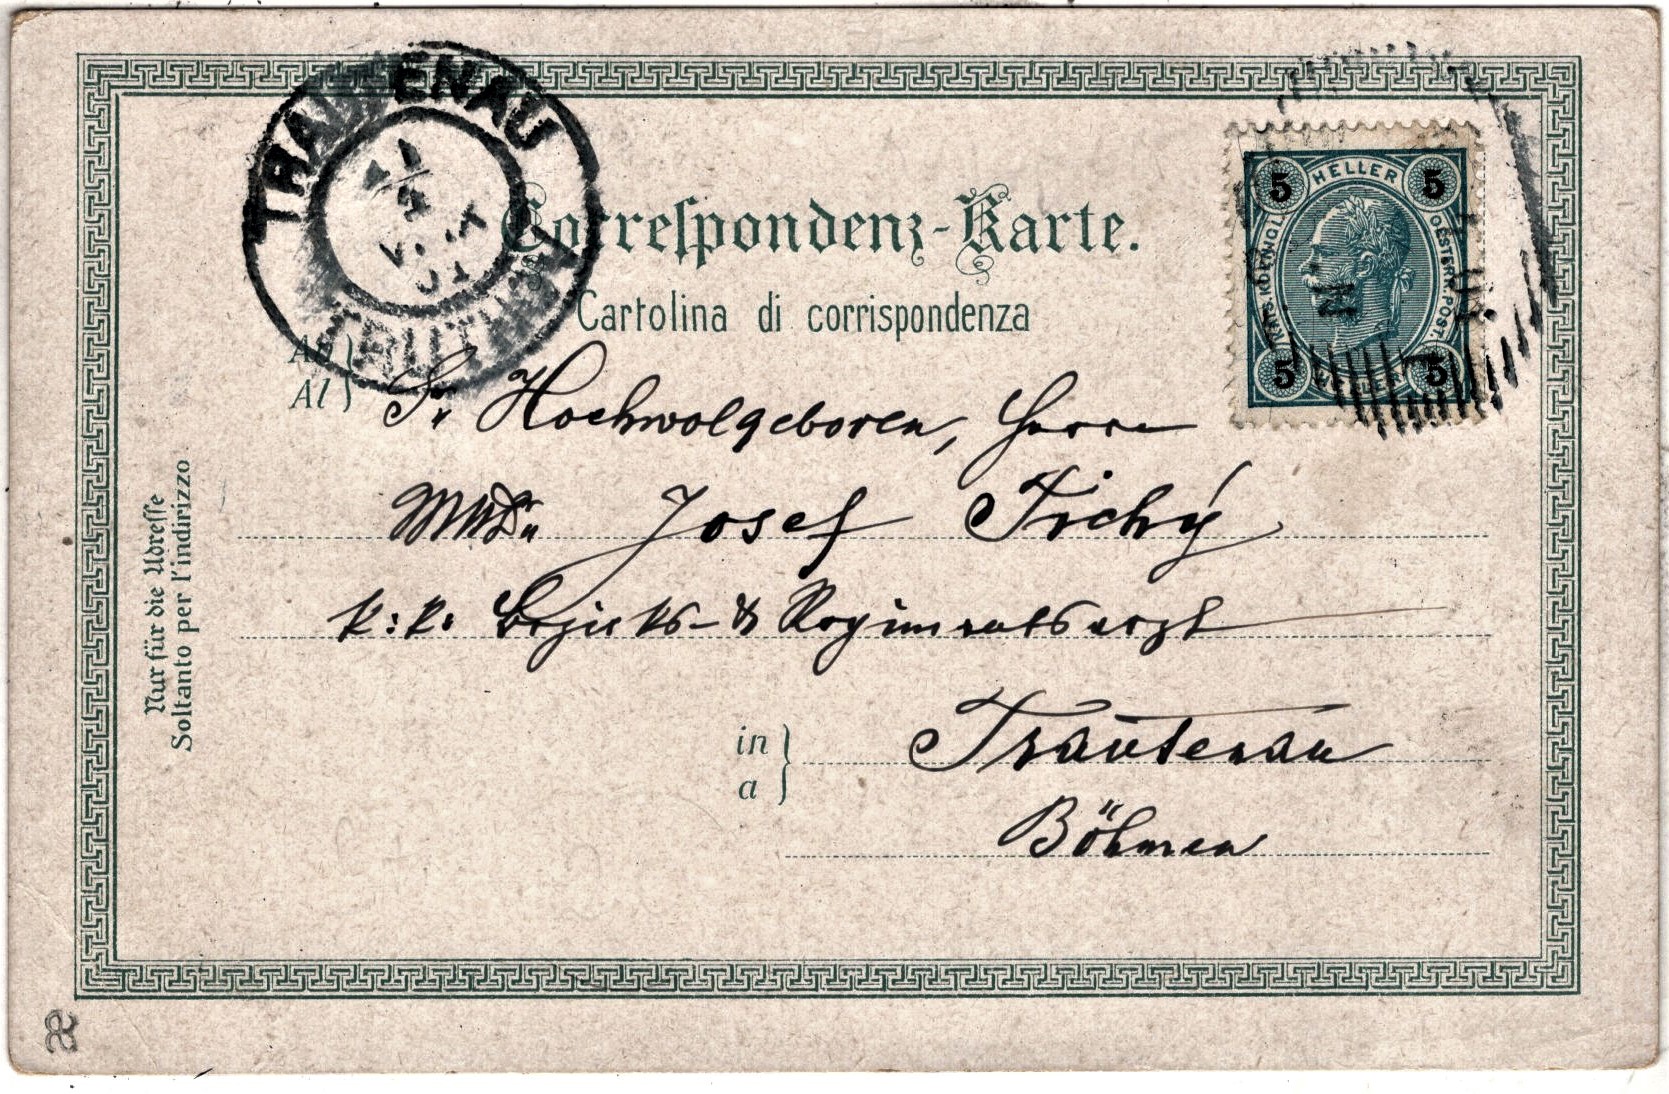 TRAUTENAU
TRUTNOV
01
Correspondenz-Karte.
Cartolina di corrispondenza
5 HELLER 5
KAIS. KOENIGL. OESTERR. POST.
5 HELLER 5
An
Al
Sr Hochwolgeboren, Herrn
MUDr Josef Tichý
k: k: Bezirks- & Regimentsarzt
in
a
Trautenau
Böhmen
Nur für die Adresse
Soltanto per l'indirizzo